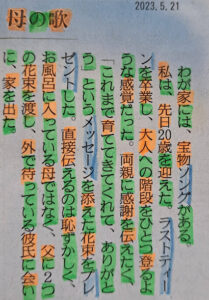 2023.5.21
母の歌
わが家には、宝物ソングがある。
私は、先日20歳を迎えた。ラストティー
ンを卒業し、大人への階段をひとつ登るよ
うな感覚だった。両親に感謝を伝えたく、
「これまで育ててきてくれて、ありがと
う」というメッセージを添えた花束をプレ
ゼントした。直接伝えるのは恥ずかしく、
お風呂に入っている母ではなく、父に2つ
の花束を渡し、外で待っている彼氏に会い
に、家を出た。